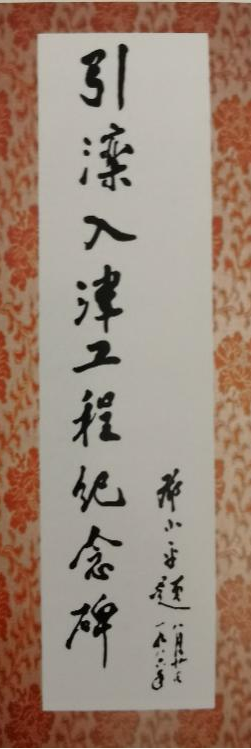 引滦入津工程纪念碑
邓小平题
一九八六年
八月廿日